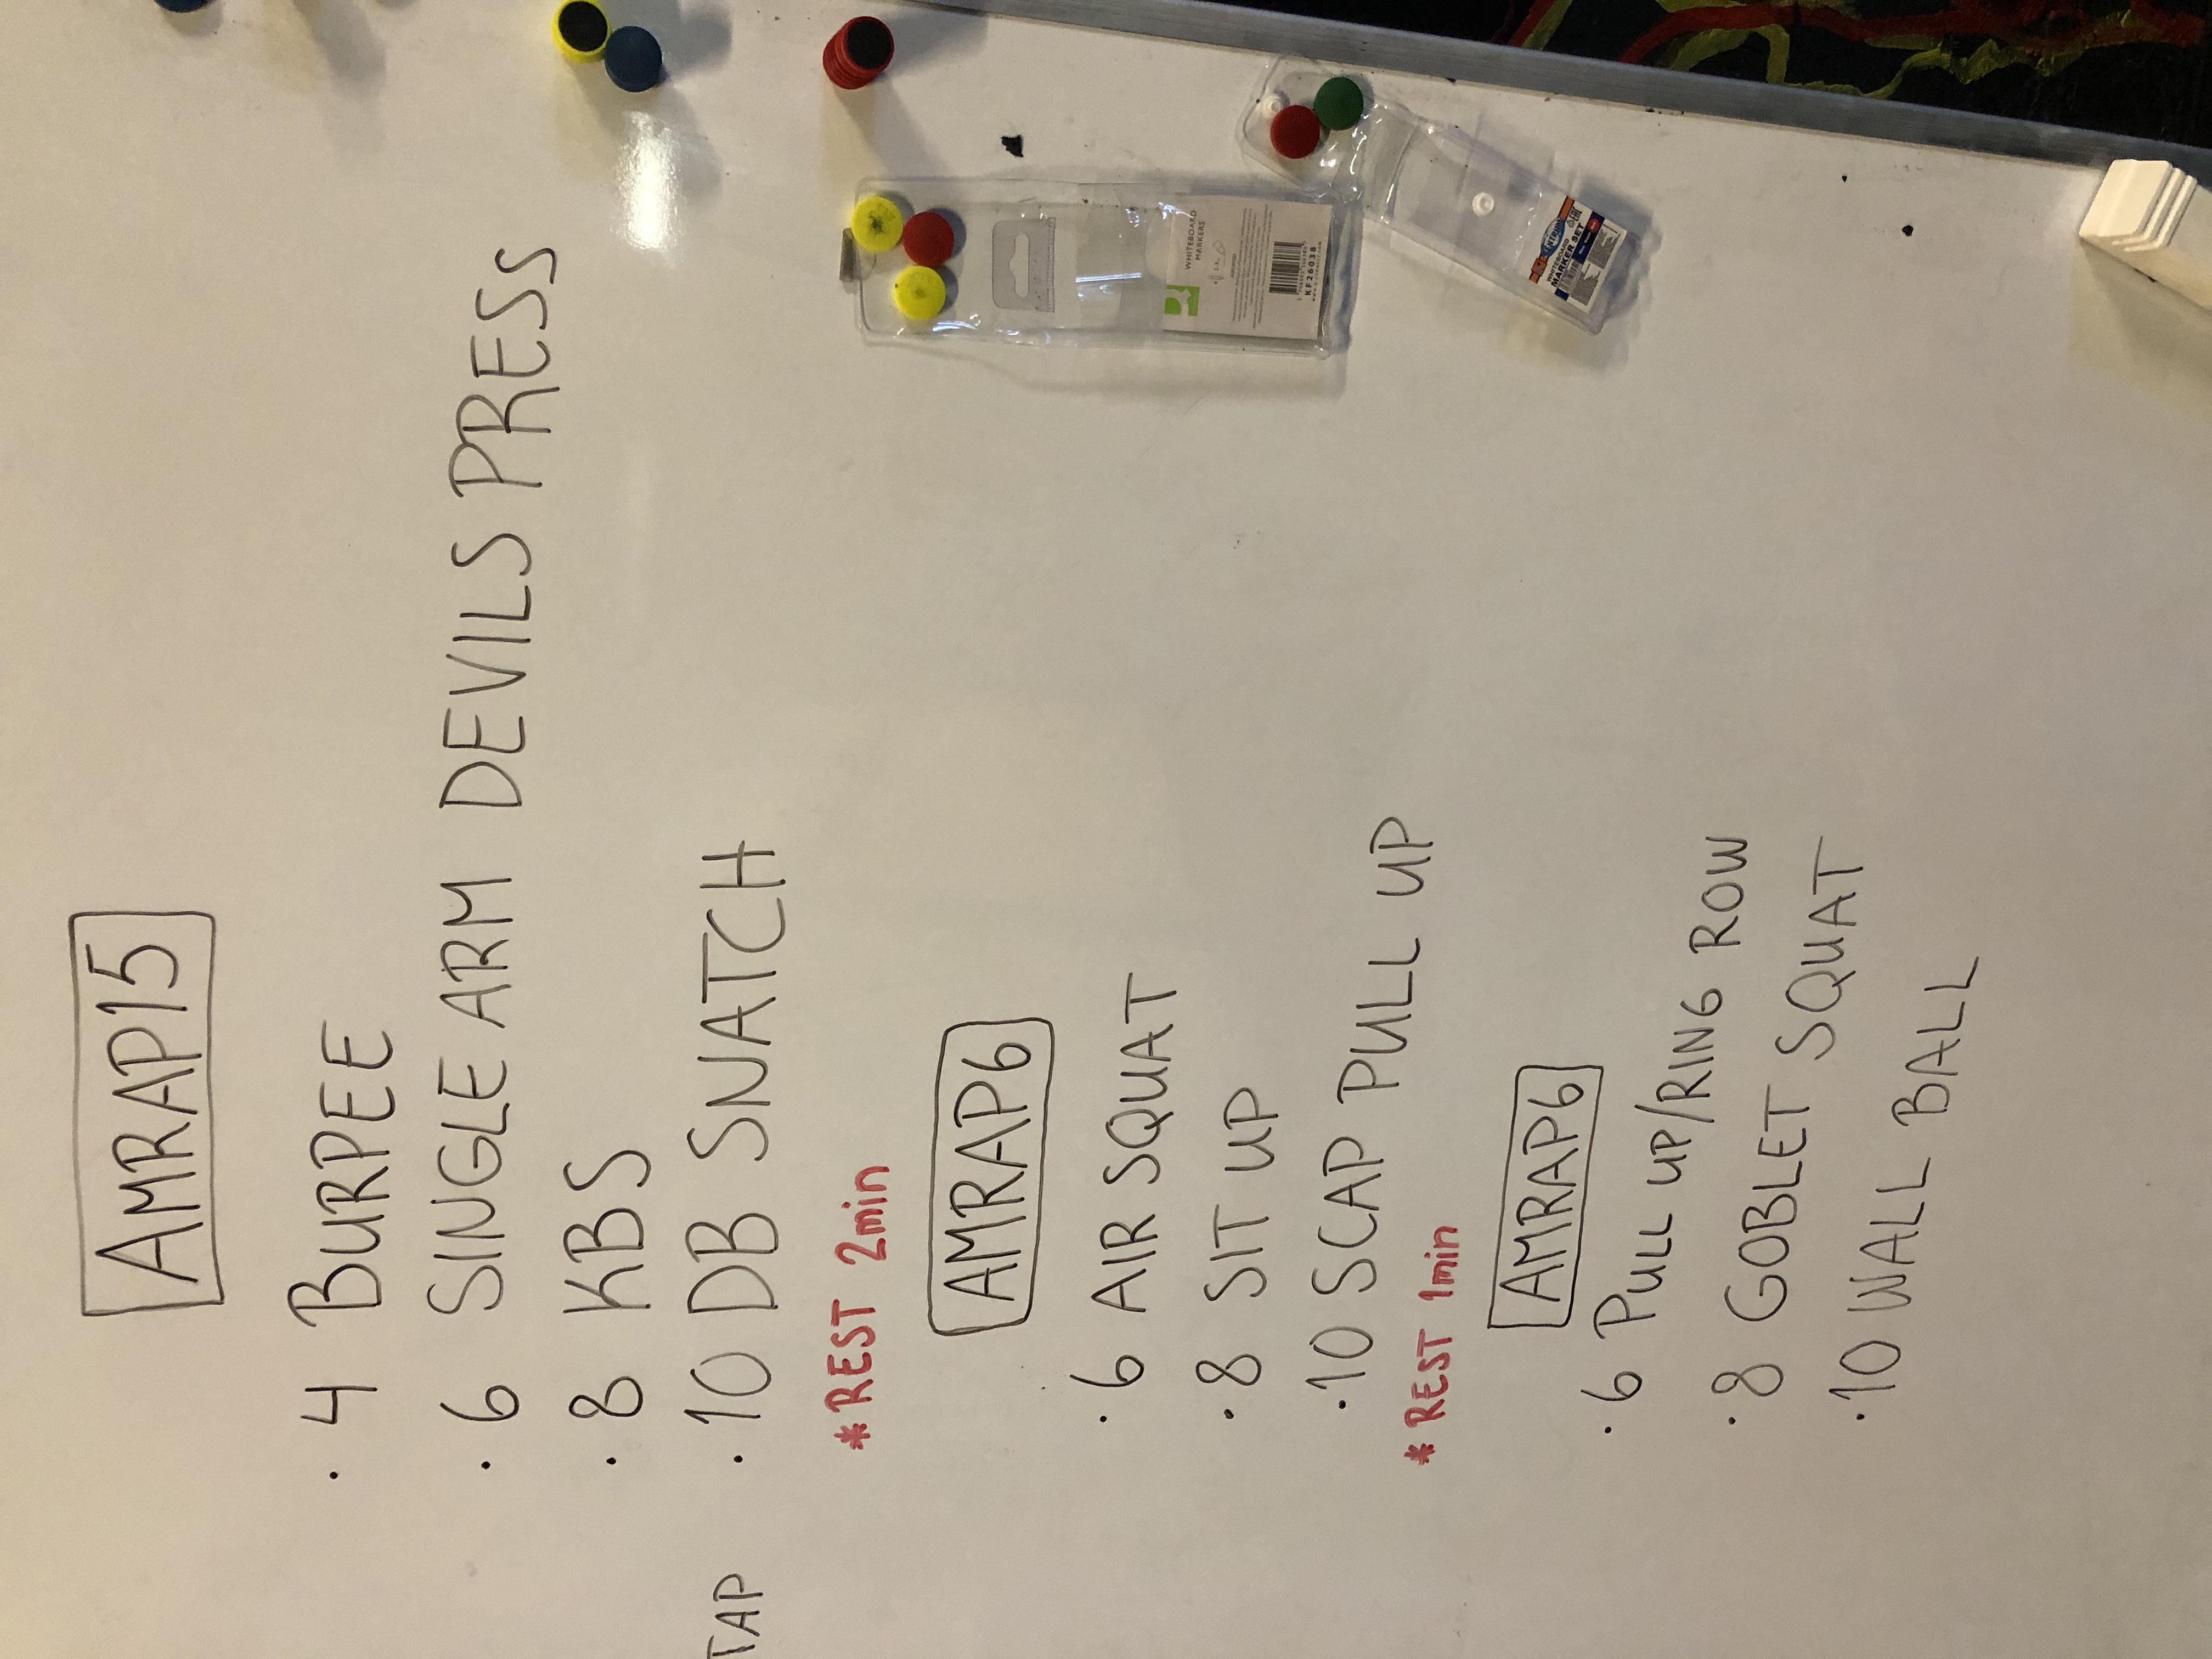 AMRAP15
· 4 BURPEE
· 6 SINGLE ARM DEVILS PRESS
· 8 KBS
· 10 DB SNATCH
*REST 2min
AMRAP6
· 6 AIR SQUAT
· 8 SIT UP
· 10 SCAP PULL UP
* REST 1min
AMRAP6
· 6 PULL UP/RING ROW
· 8 GOBLET SQUAT
· 10 WALL BALL
TAP
WHITEBOARD
MARKERS
KF26038
WHITEBOARD
MARKER SET